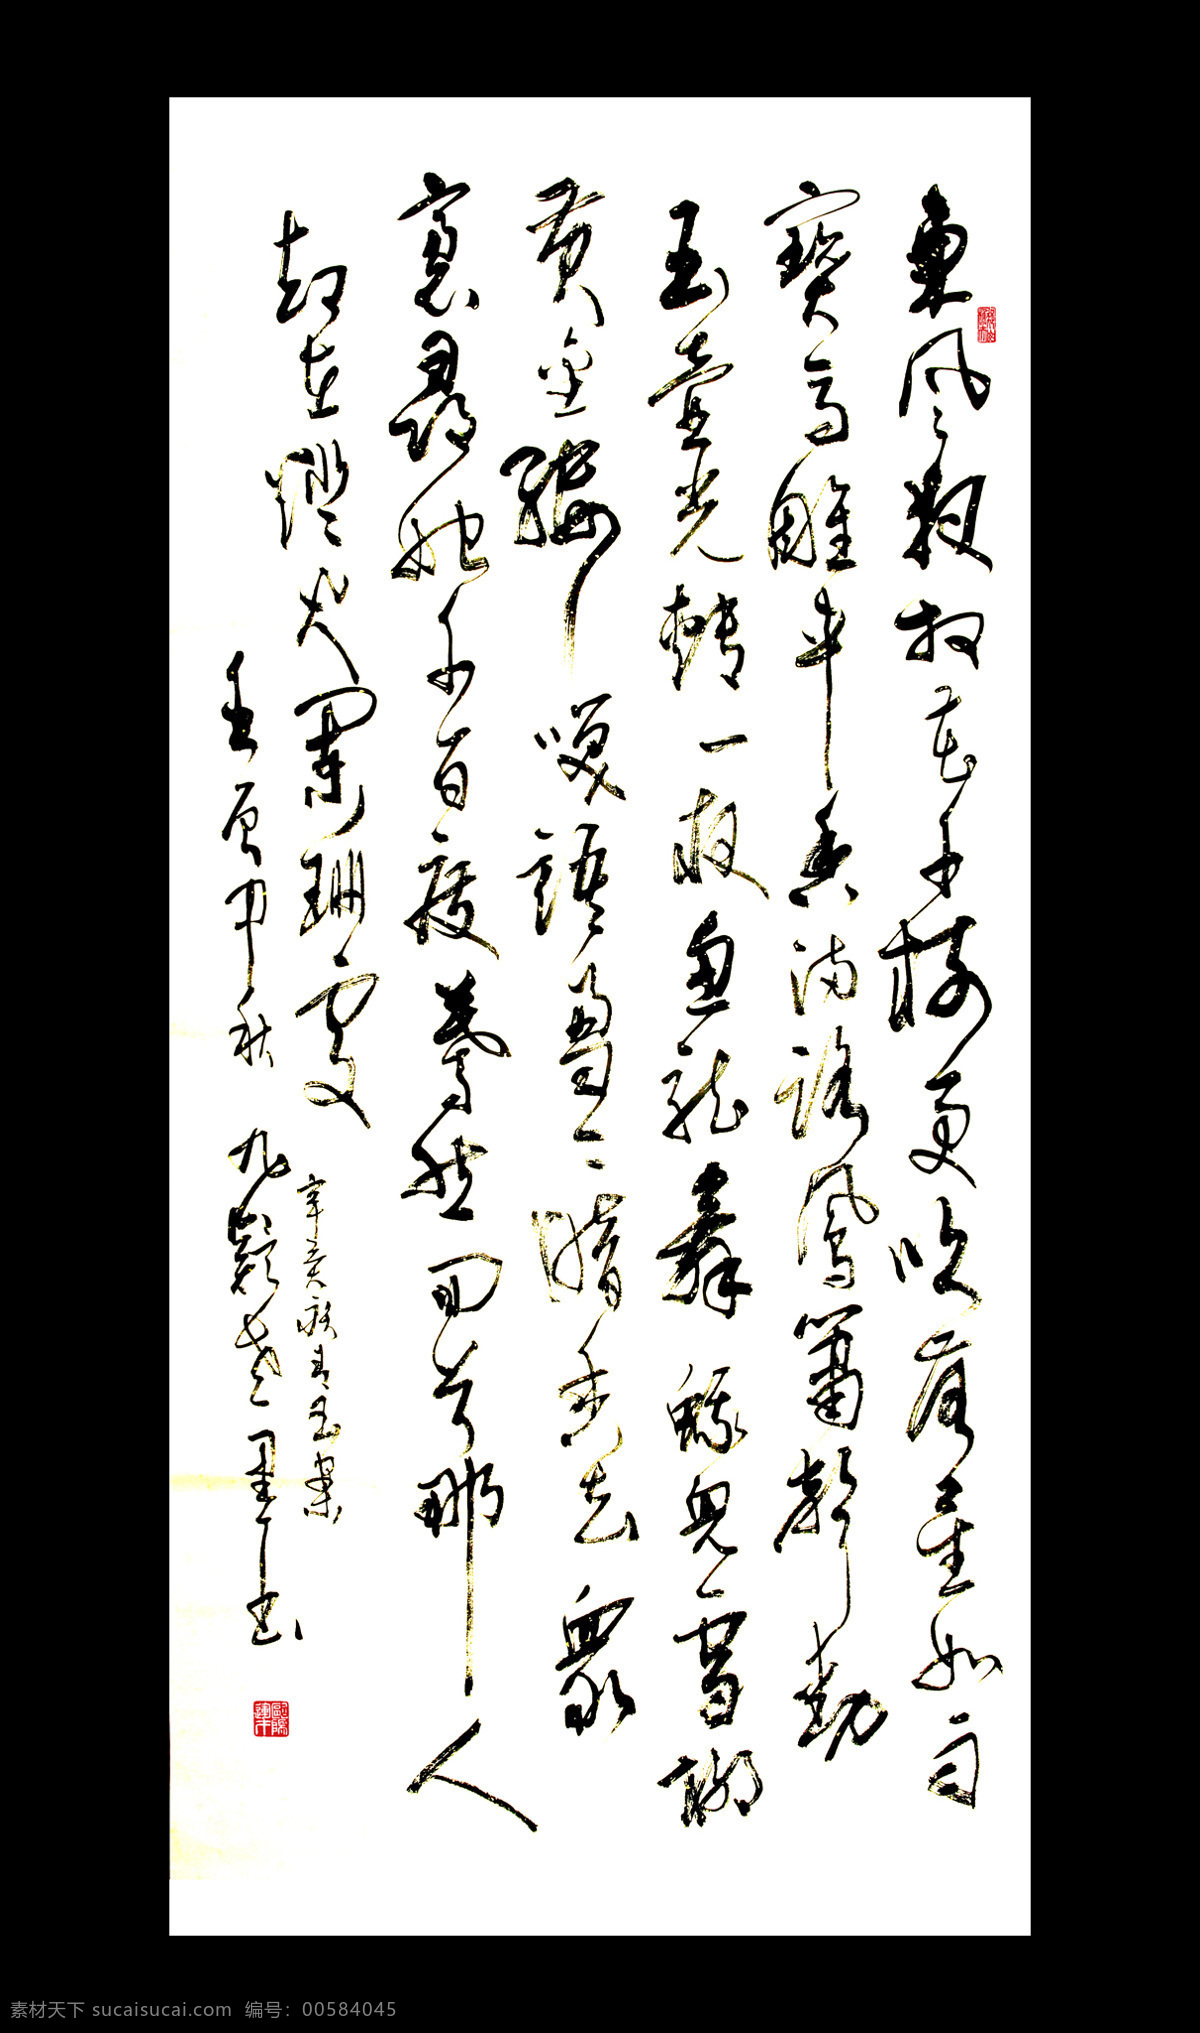 東風夜放花千樹更吹落星如雨
寶馬雕車香滿路鳳簫聲動
玉壺光轉一夜魚龍舞蛾兒雪柳
黃金縷笑語盈盈暗香去衆
裏尋他千百度驀然回首那人
却在燈火闌珊處 辛棄疾青玉案
秋 九嶷老墨書
素材天下 sucaisucai.com 编号：00584045